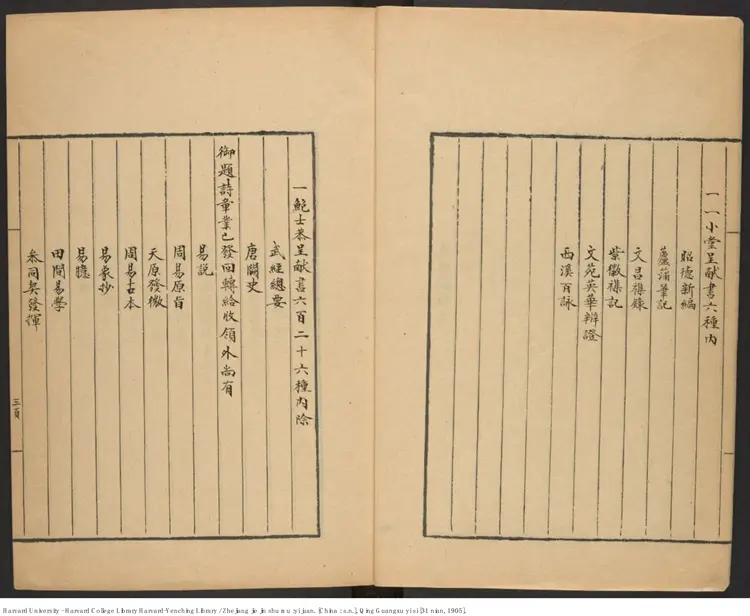 一一小堂呈献書六種内
昭德新編
蘆蒲筆記
文昌雜錄
紫微雜記
文苑英華辯證
西溪百詠
一鮑士恭呈献書六百二十六種内除
武經總要
唐闕史
御題詩章業已發回轉給收領外尚有
易說
周易原旨
天原發微
周易古本
易象抄
易牕
田間易學
叅同契發揮
三頁
Harvard University - Harvard College Library Harvard-Yenching Library / Zhejiang jie jin shu mu : yi juan. [China : s.n.], Qing Guangxu yi si [31 nian, 1905].